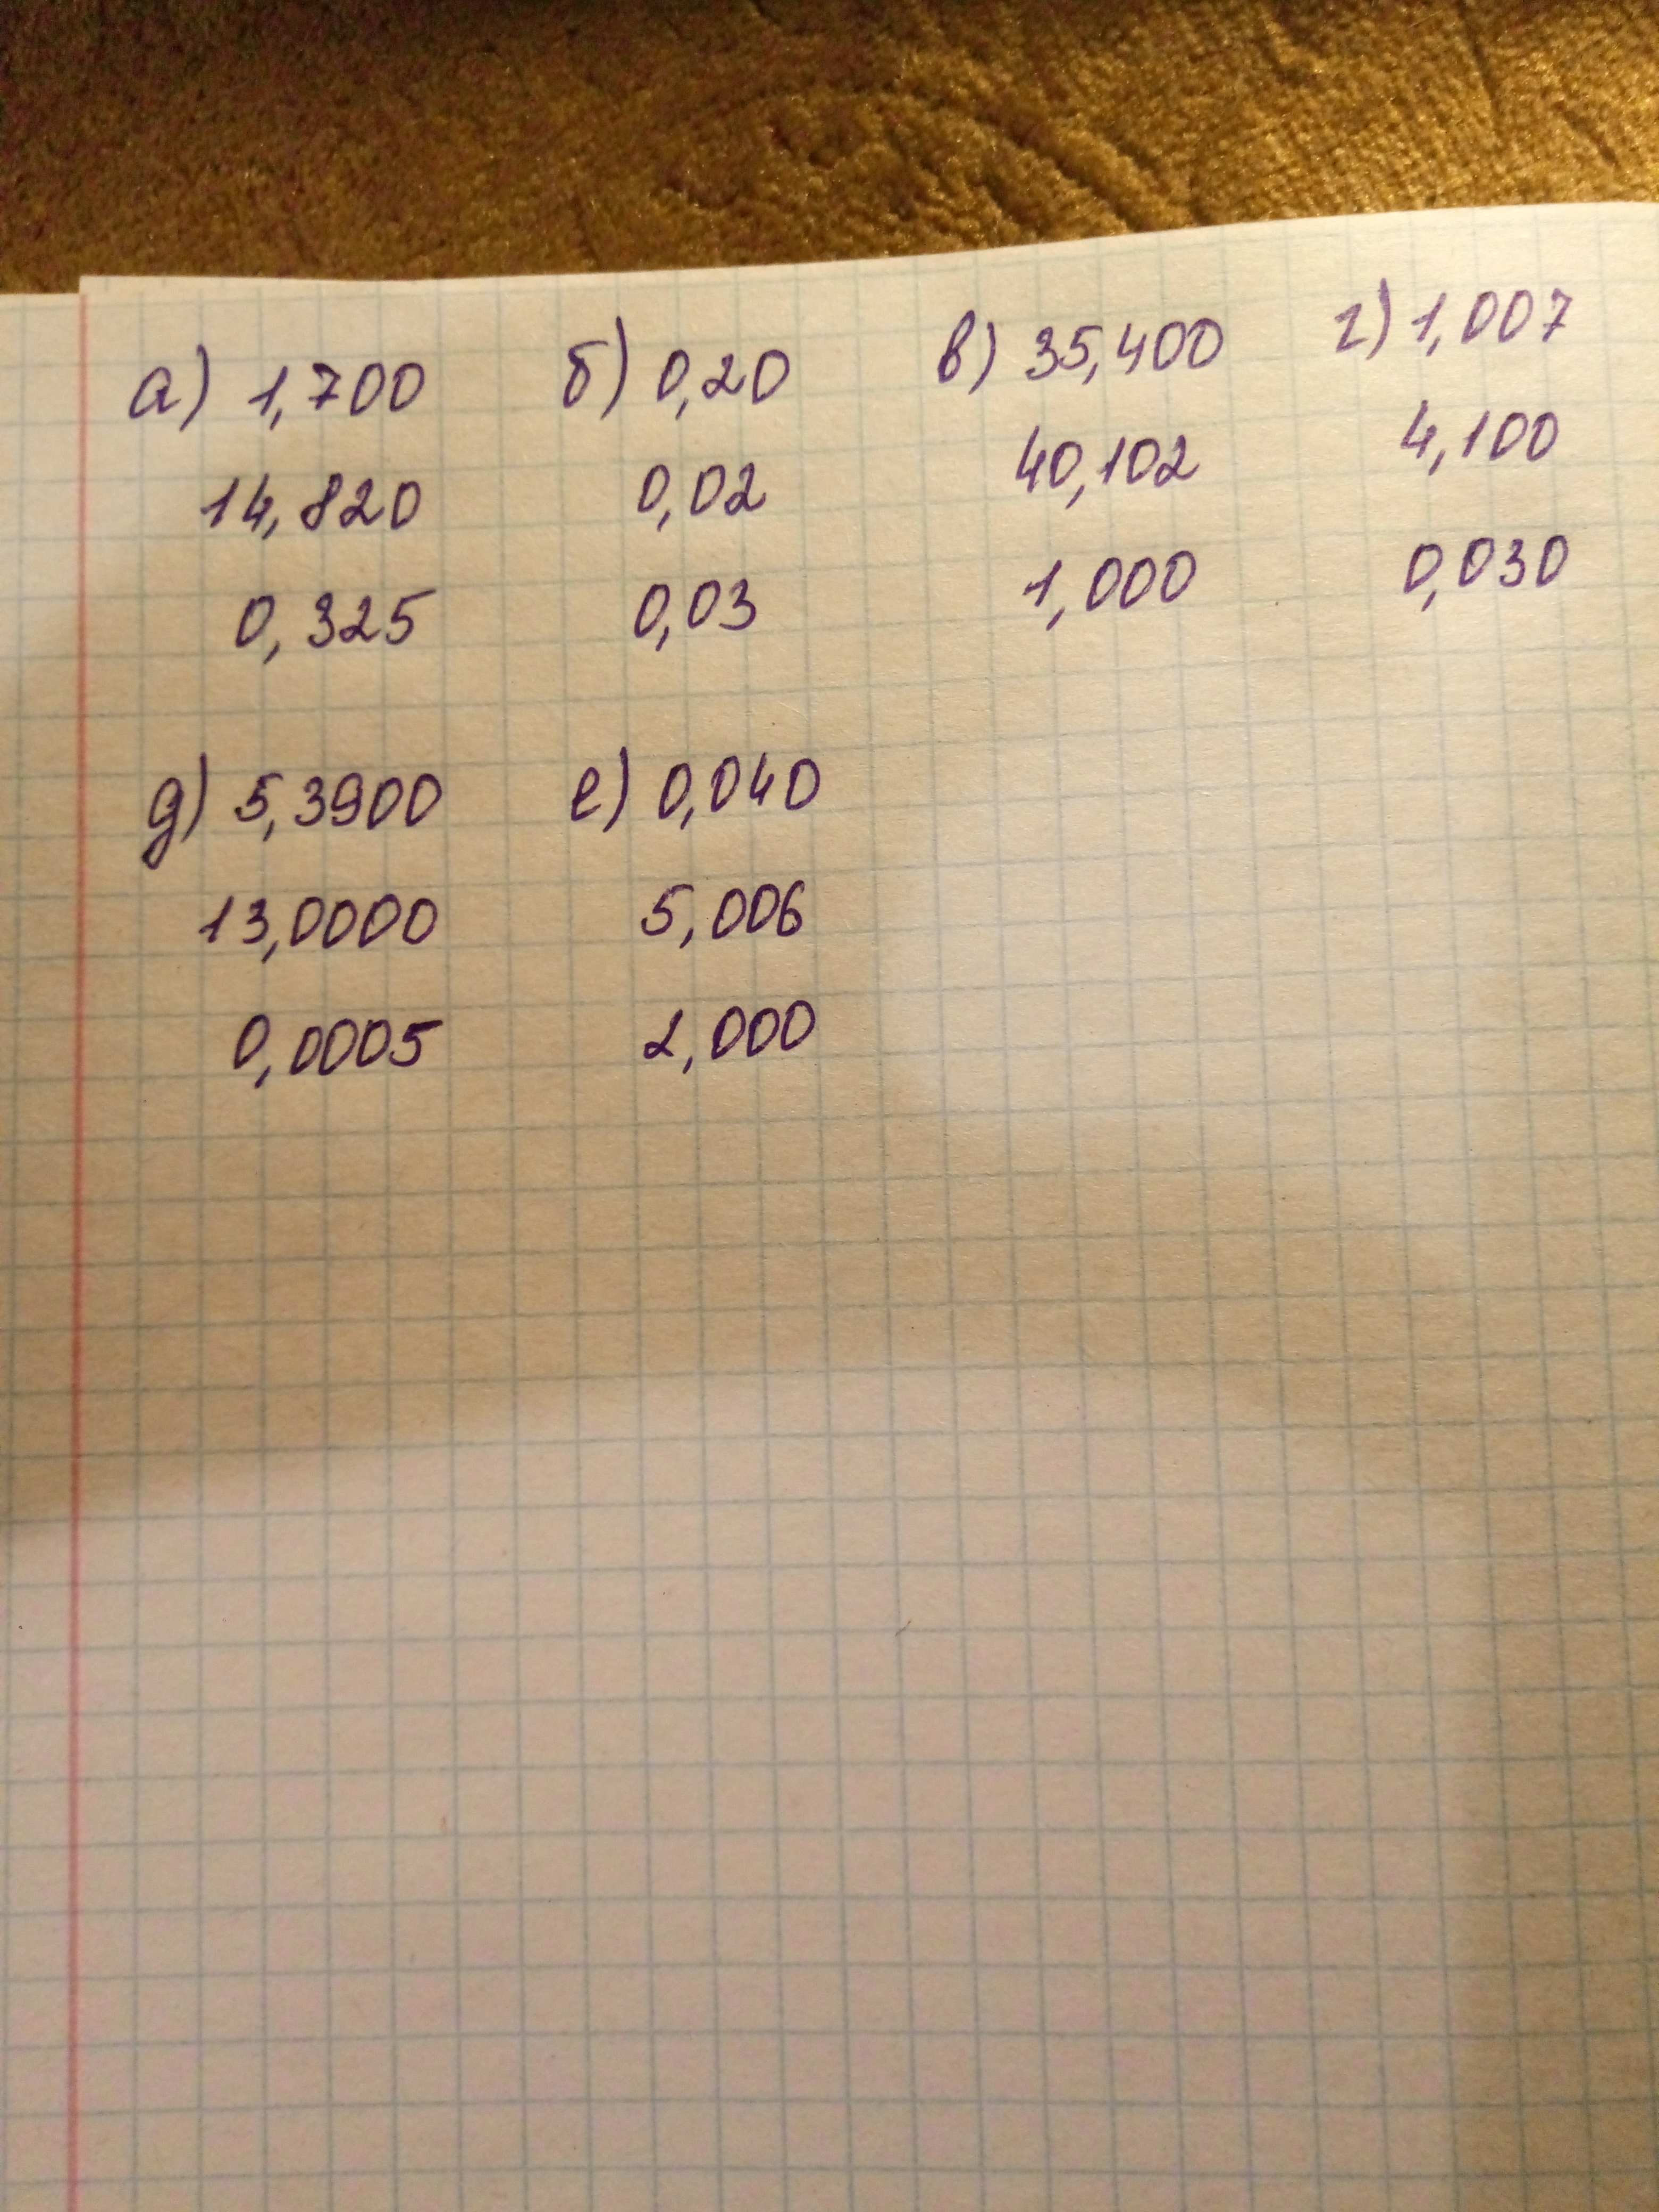 а) 1,700 б) 0,20 в) 35,400 г) 1,007
14,820 0,02 40,102 4,100
0,325 0,03 1,000 0,030
д) 5,3900 е) 0,040
13,0000 5,006
0,0005 2,000